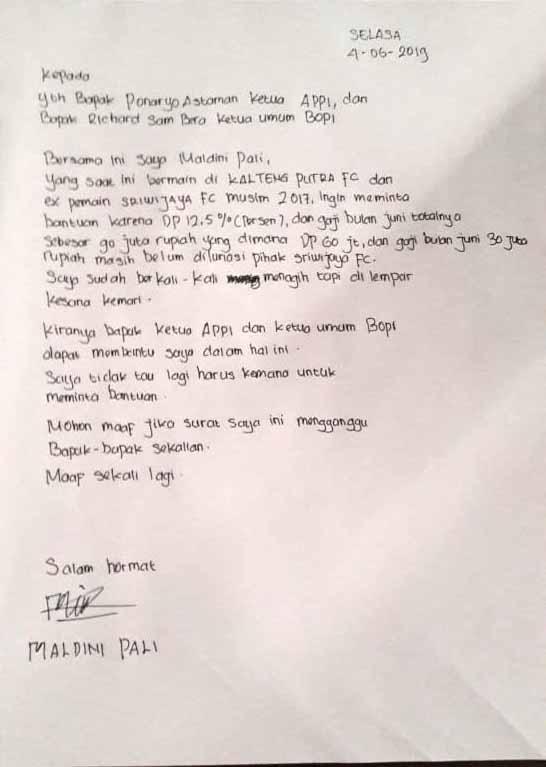 SELASA
4-06-2019
Kepada
Yth Bapak Ponaryo Astaman Ketua APPI, dan
Bapak Richard Sam Bera Ketua umum BOPI
Bersama ini saya Maldini Pali,
Yang saat ini bermain di KALTENG PUTRA FC dan
ex pemain SRIWIJAYA FC musim 2017. Ingin meminta
bantuan karena DP 12.5 % (Persen), dan gaji bulan juni totalnya
sebesar 90 juta rupiah yang dimana DP 60 jt, dan gaji bulan juni 30 juta
rupiah masih belum dilunasi pihak sriwijaya FC.
Saya sudah berkali-kali menagih tapi di lempar
kesana kemari.
Kiranya bapak ketua APPI dan ketua umum BOPI
dapat membantu saya dalam hal ini.
Saya tidak tau lagi harus kemana untuk
meminta bantuan.
Mohon maaf jika surat saya ini mengganggu
Bapak-bapak sekalian.
Maaf sekali lagi.
Salam hormat
MALDINI PALI